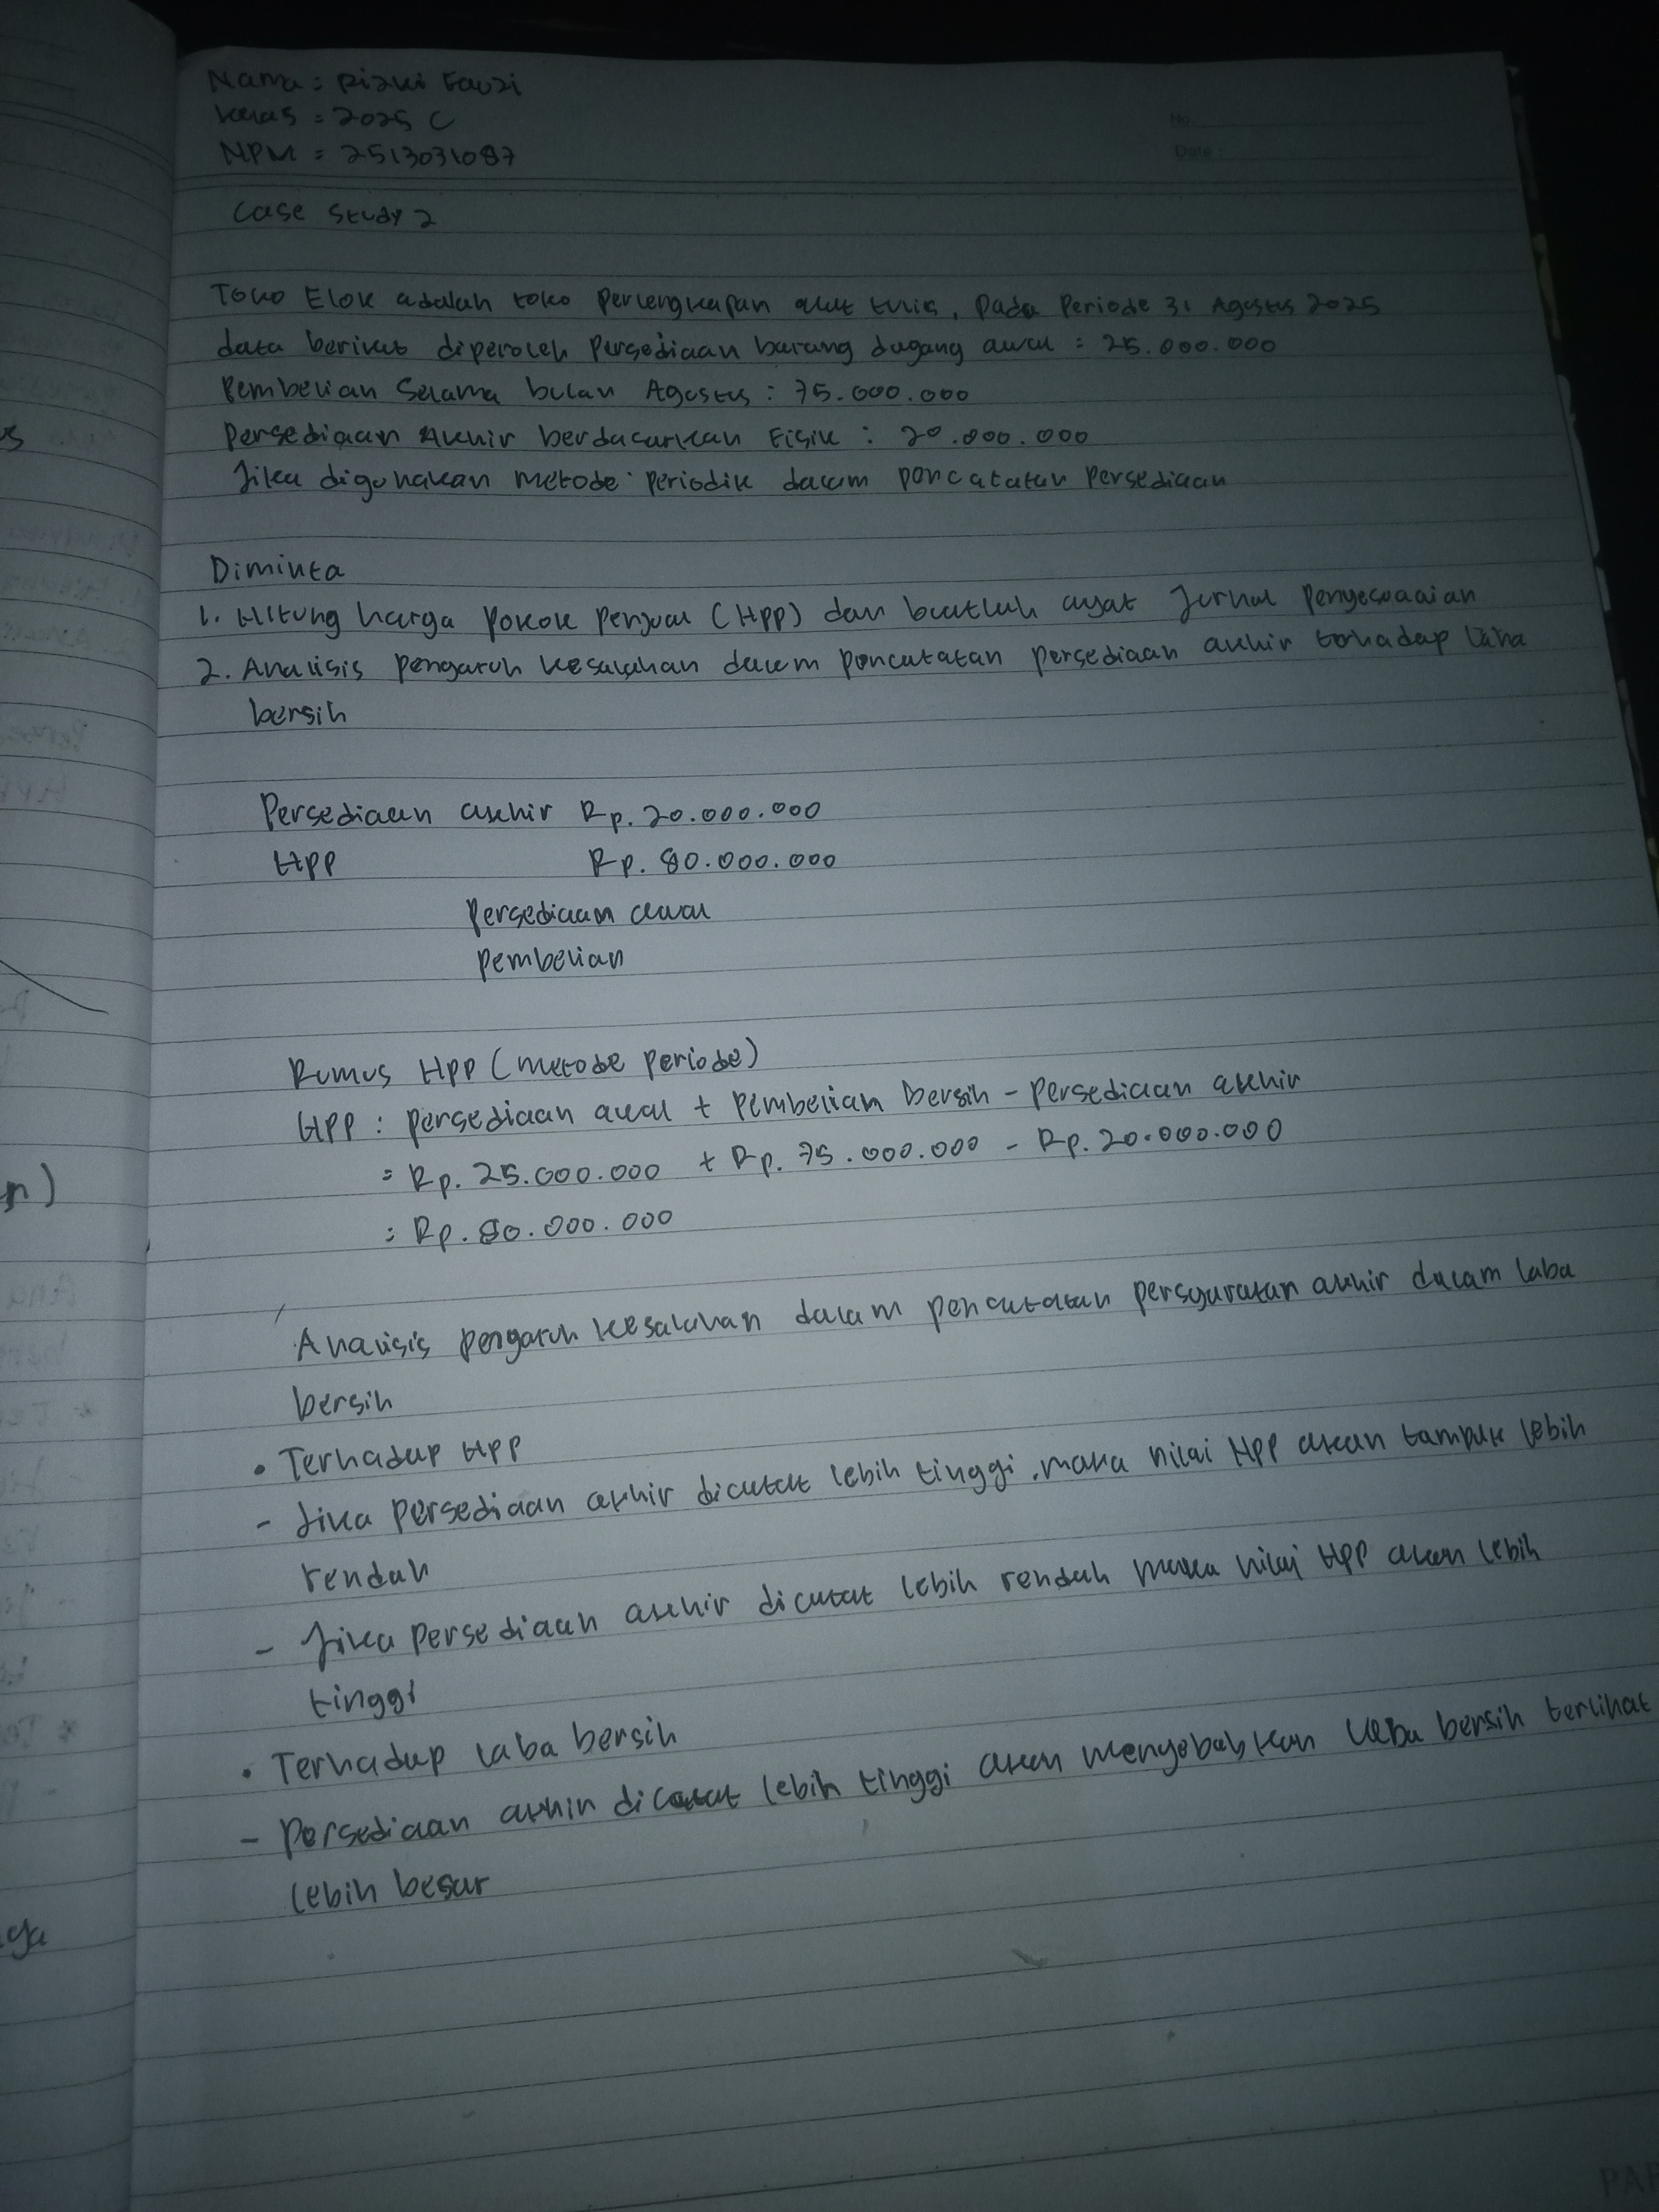 Nama : Rizki Fauzi
Kelas = 2025 C
NPM = 2513031087
No.
Date :
Case Study 2
Toko Elok adalah toko perlengkapan alat tulis, pada Periode 31 Agustus 2025
data berikut diperoleh Persediaan barang dagang awal = 25.000.000
Pembelian Selama bulan Agustus : 75.000.000
Persediaan Akhir berdasarkan Fisik : 20.000.000
Jika digunakan metode periodik dalam poncatatan Persediaan
Diminta
1. Hitung harga Pokok Penjual (HPP) dan buatlah ayat Jurnal Penyesuaaian
2. Analisis pengaruh kesalahan dalam poncatatan persediaan akhir terhadap Laba
bersih
Persediaan akhir Rp. 20.000.000
HPP Rp. 80.000.000
Persediaan awal
Pembelian
Rumus HPP (metode Periode)
HPP : persediaan awal + Pembelian bersih - Persediaan akhir
= Rp. 25.000.000 + Rp. 75.000.000 - Rp. 20.000.000
= Rp. 80.000.000
Analisis pengaruh kesalahan dalam pencatatan persyaratan akhir dalam laba
bersih
• Terhadap HPP
- Jika Persediaan akhir dicatat lebih tinggi, maka nilai HPP akan tampak lebih
rendah
- Jika Persediaan akhir dicatat lebih rendah maka nilai HPP akan lebih
tinggi
• Terhadap laba bersih
- Persediaan akhir dicatat lebih tinggi akan menyebabkan laba bersih terlihat
lebih besar
n)
ga